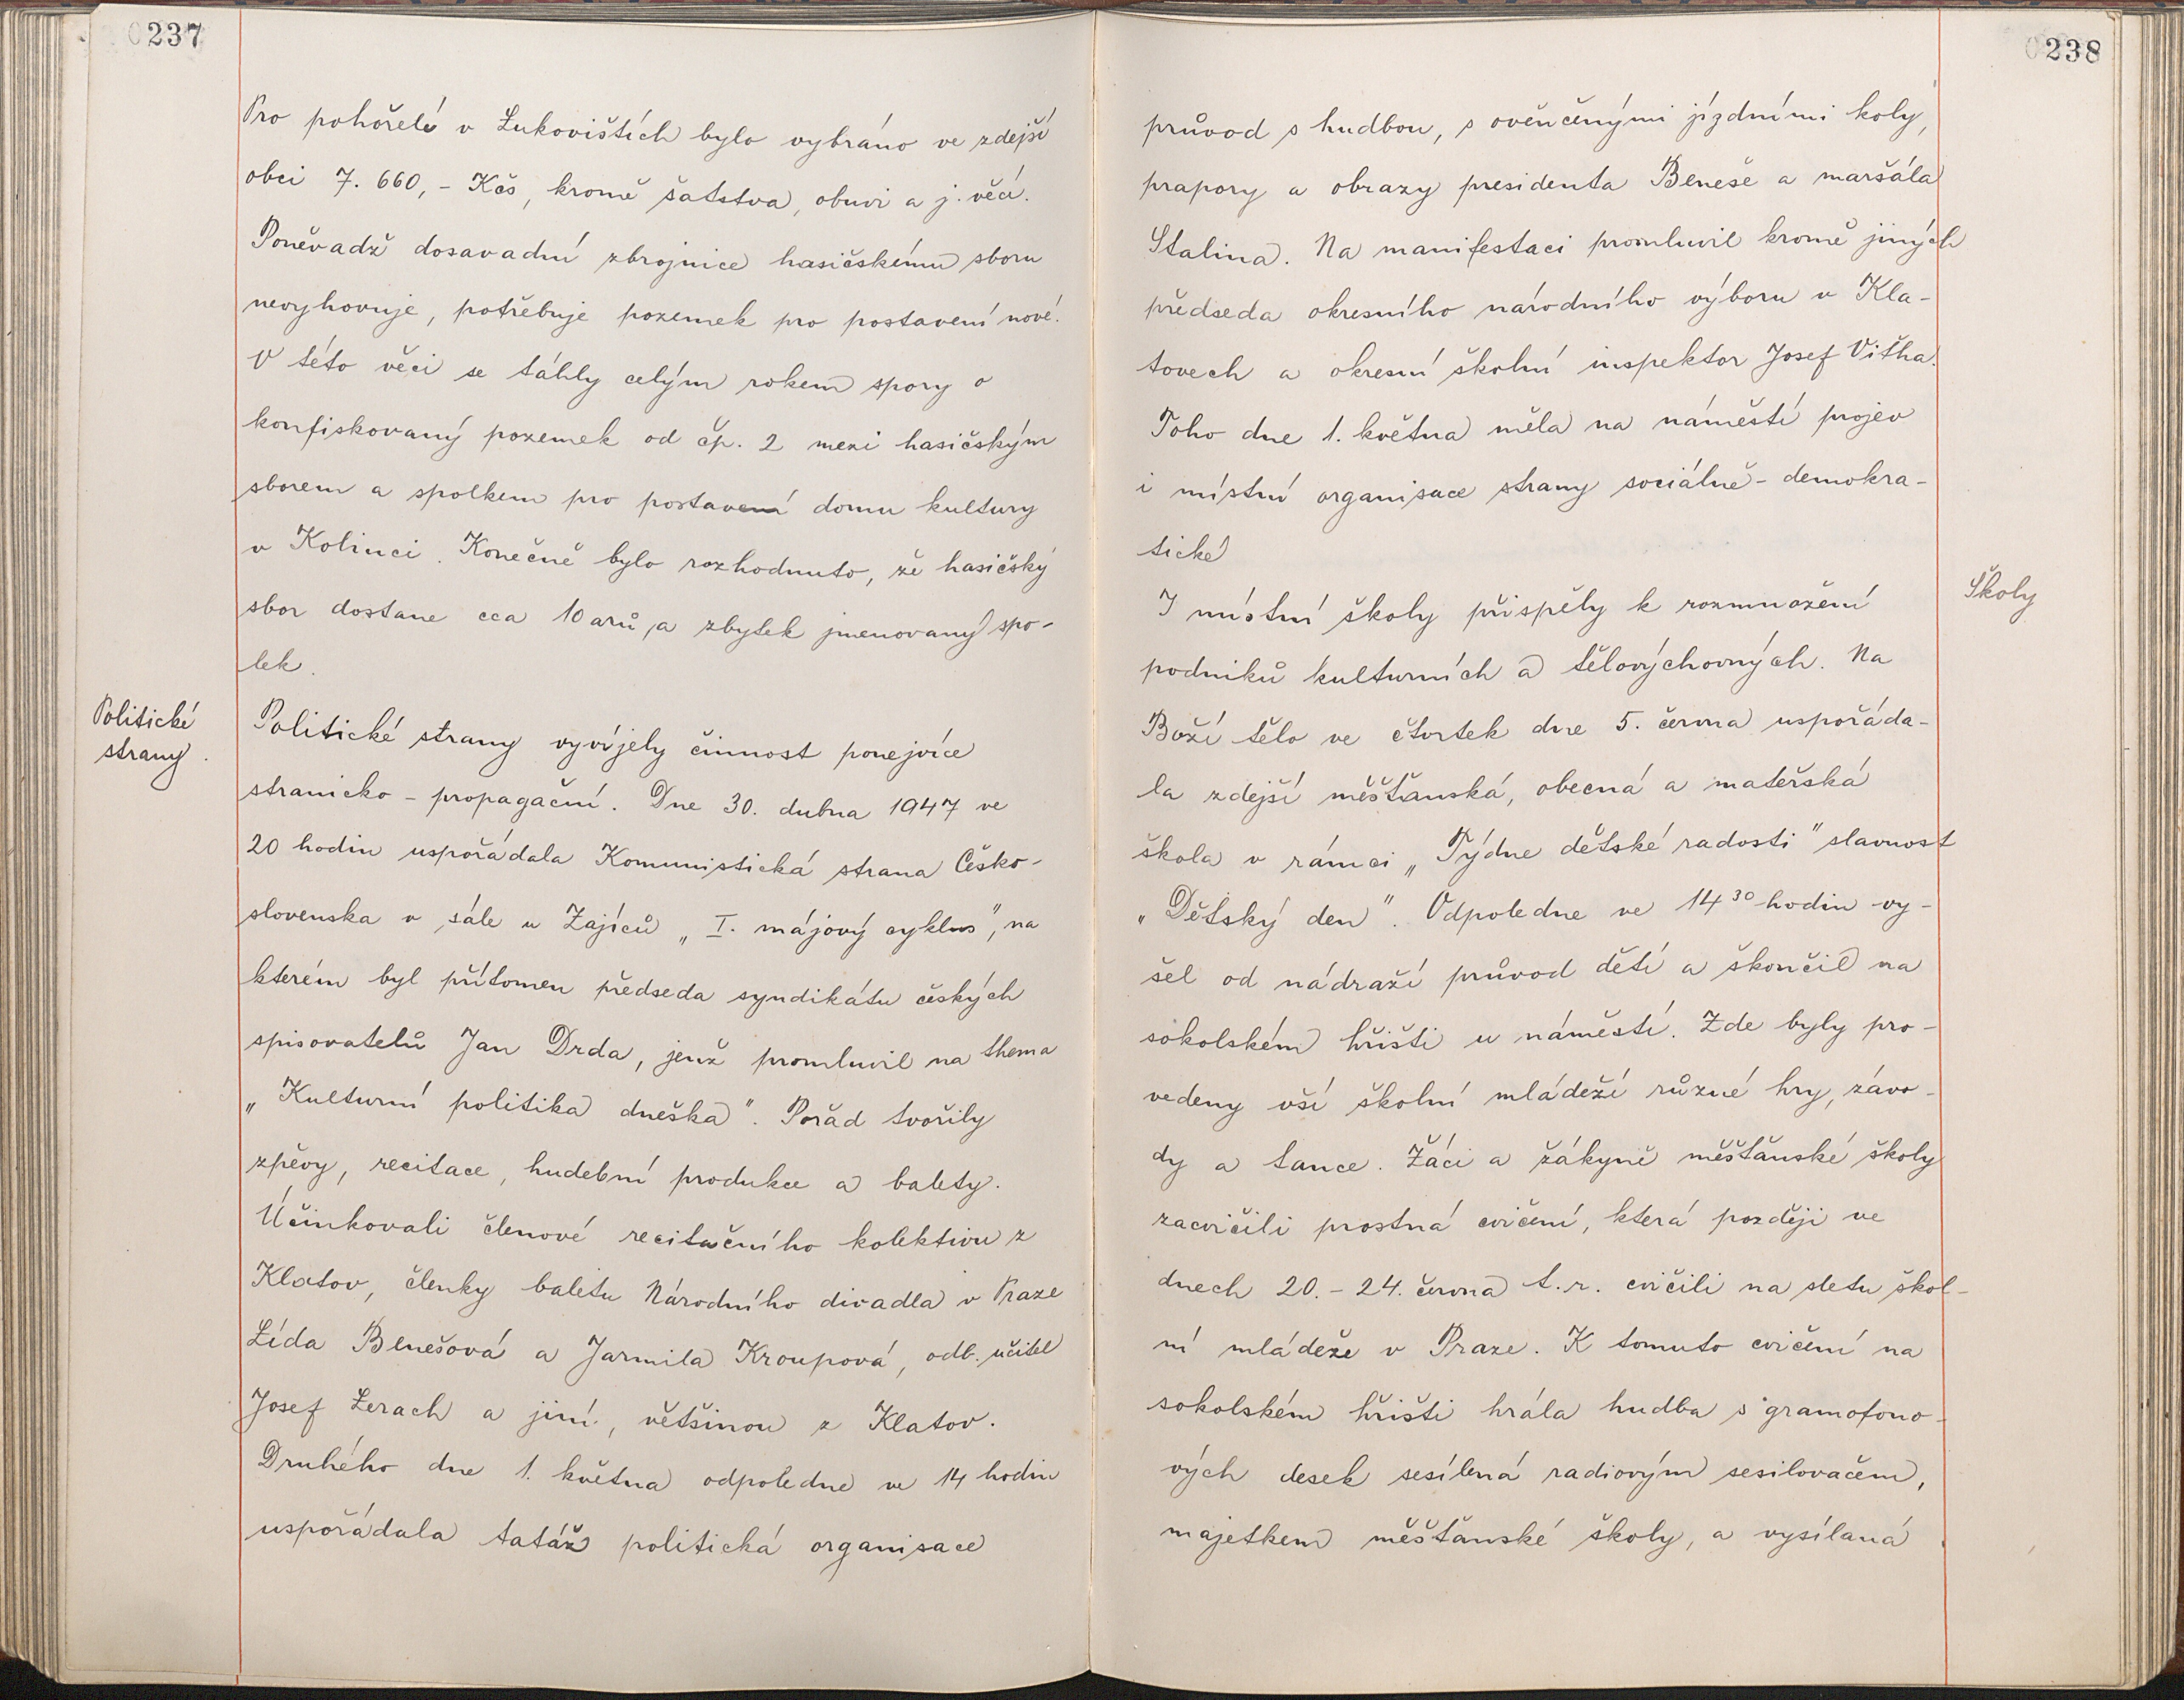 237
Pro pohořelé v Lukovištích bylo vybráno ve zdejší
obci 7.660,- Kčs, kromě šatstva, obuvi a j. věcí.
Poněvadž dosavadní zbrojnice hasičskému sboru
nevyhovuje, potřebuje pozemek pro postavení nové.
V této věci se táhly celým rokem spory o
konfiskovaný pozemek od čp. 2 mezi hasičským
sborem a spolkem pro postavení domu kultury
v Kolinci. Konečně bylo rozhodnuto, že hasičský
sbor dostane cca 10 arů, a zbytek jmenovaný spo-
lek.
Politické
strany.
Politické strany vyvíjely činnost ponejvíce
stranicko - propagační. Dne 30. dubna 1947 ve
20 hodin uspořádala Komunistická strana Česko-
slovenska v sále u Zajíců „I. májový cyklus", na
kterém byl přítomen předseda syndikátu českých
spisovatelů Jan Drda, jenž promluvil na thema
„Kulturní politika dneška". Pořad tvořily
zpěvy, recitace, hudební produkce a balety.
Účinkovali členové recitačního kolektivu z
Klatov, členky baletu Národního divadla v Praze
Lída Benešová a Jarmila Kroupová, odb. učitel
Josef Lerach a jiní, většinou z Klatov.
Druhého dne 1. května odpoledne ve 14 hodin
uspořádala tatáž politická organisace
238
průvod s hudbou, s ověnčenými jízdními koly,
prapory a obrazy presidenta Beneše a maršála
Stalina. Na manifestaci promluvil kromě jiných
předseda okresního národního výboru v Kla-
tovech a okresní školní inspektor Josef Viťha.
Toho dne 1. května měla na náměstí projev
i místní organisace strany sociálně - demokra-
tické
Školy
I místní školy přispěly k rozmnožení
podniků kulturních a tělovýchovných. Na
Boží tělo ve čtvrtek dne 5. června uspořáda-
la zdejší měšťanská, obecná a mateřská
škola v rámci „Týdne dětské radosti" slavnost
„Dětský den". Odpoledne ve 14³⁰ hodin vy-
šel od nádraží průvod dětí a skončil na
sokolském hřišti u náměstí. Zde byly pro-
vedeny vší školní mládeží různé hry, závo-
dy a tance. Žáci a žákyně měšťanské školy
zacvičili prostná cvičení, která později ve
dnech 20. - 24. června t. r. cvičili na sletu škol-
ní mládeže v Praze. K tomuto cvičení na
sokolském hřišti hrála hudba s gramofono-
vých desek sesílená radiovým sesilovačem,
majetkem měšťanské školy, a vysílaná